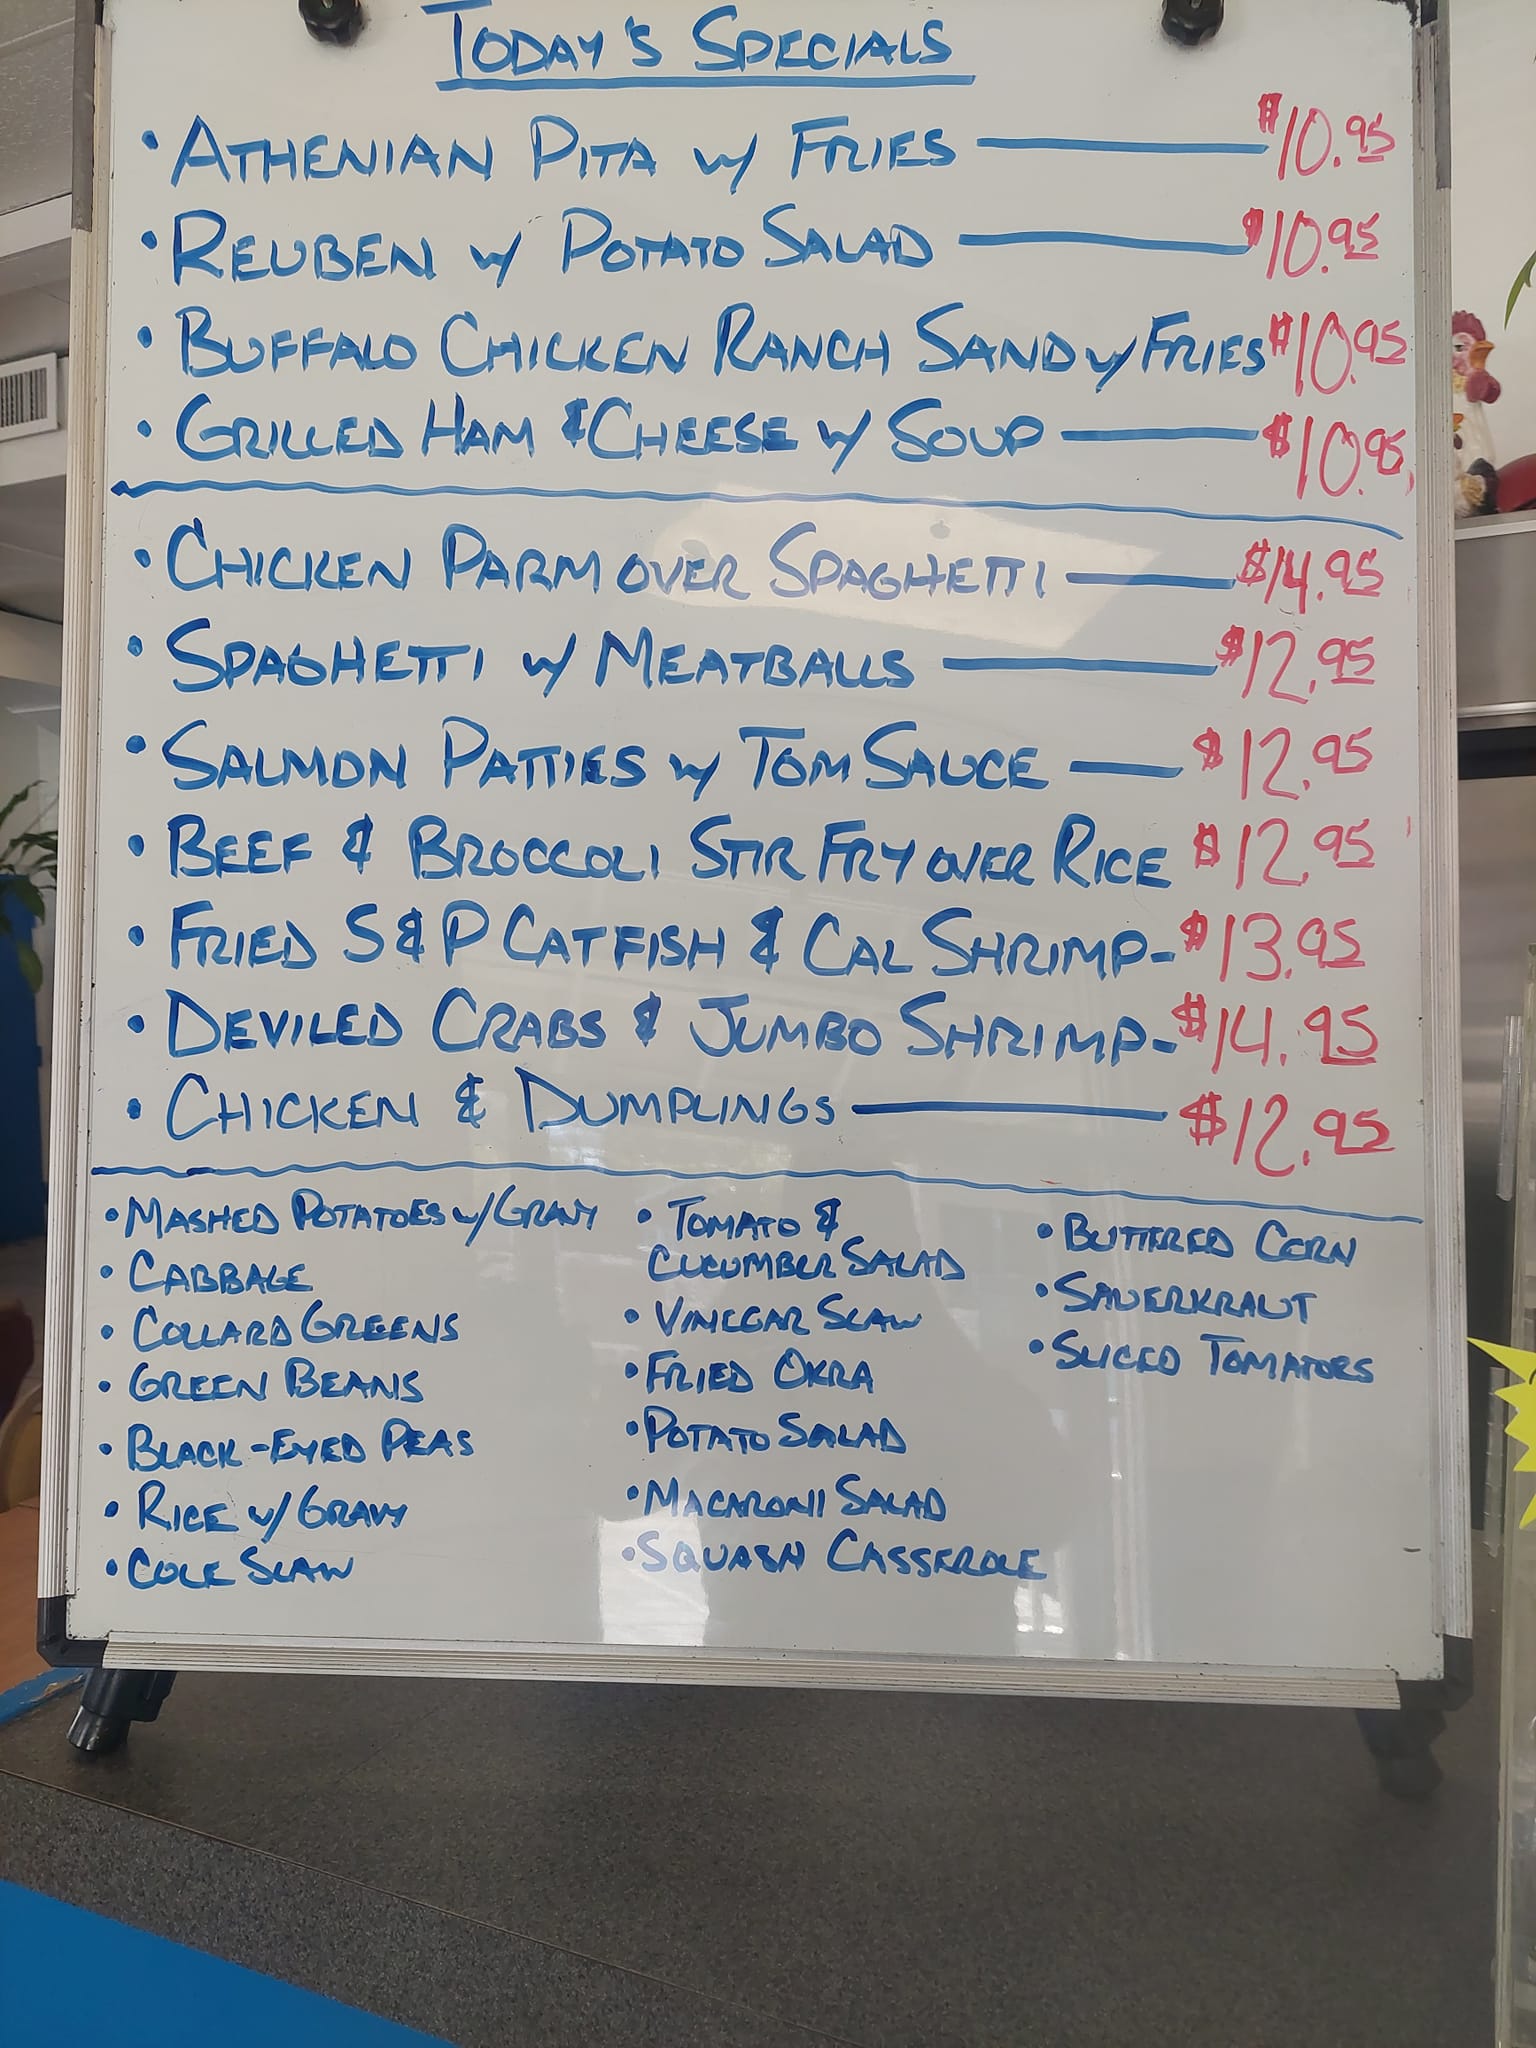 TODAY'S SPECIALS
• ATHENIAN PITA w/ FRIES — $10.95
• REUBEN w/ POTATO SALAD — $10.95
• BUFFALO CHICKEN RANCH SAND w/ FRIES $10.95
• GRILLED HAM & CHEESE w/ SOUP — $10.95
• CHICKEN PARM OVER SPAGHETTI — $14.95
• SPAGHETTI w/ MEATBALLS — $12.95
• SALMON PATTIES w/ TOM SAUCE — $12.95
• BEEF & BROCCOLI STIR FRY OVER RICE $12.95
• FRIED S&P CATFISH & CAL SHRIMP - $13.95
• DEVILED CRABS & JUMBO SHRIMP - $14.95
• CHICKEN & DUMPLINGS — $12.95
• MASHED POTATOES w/ GRAVY
• CABBAGE
• COLLARD GREENS
• GREEN BEANS
• BLACK-EYED PEAS
• RICE w/ GRAVY
• COLE SLAW
• TOMATO &
CUCUMBER SALAD
• VINEGAR SLAW
• FRIED OKRA
• POTATO SALAD
• MACARONI SALAD
• SQUASH CASSEROLE
• BUTTERED CORN
• SAUERKRAUT
• SLICED TOMATOES